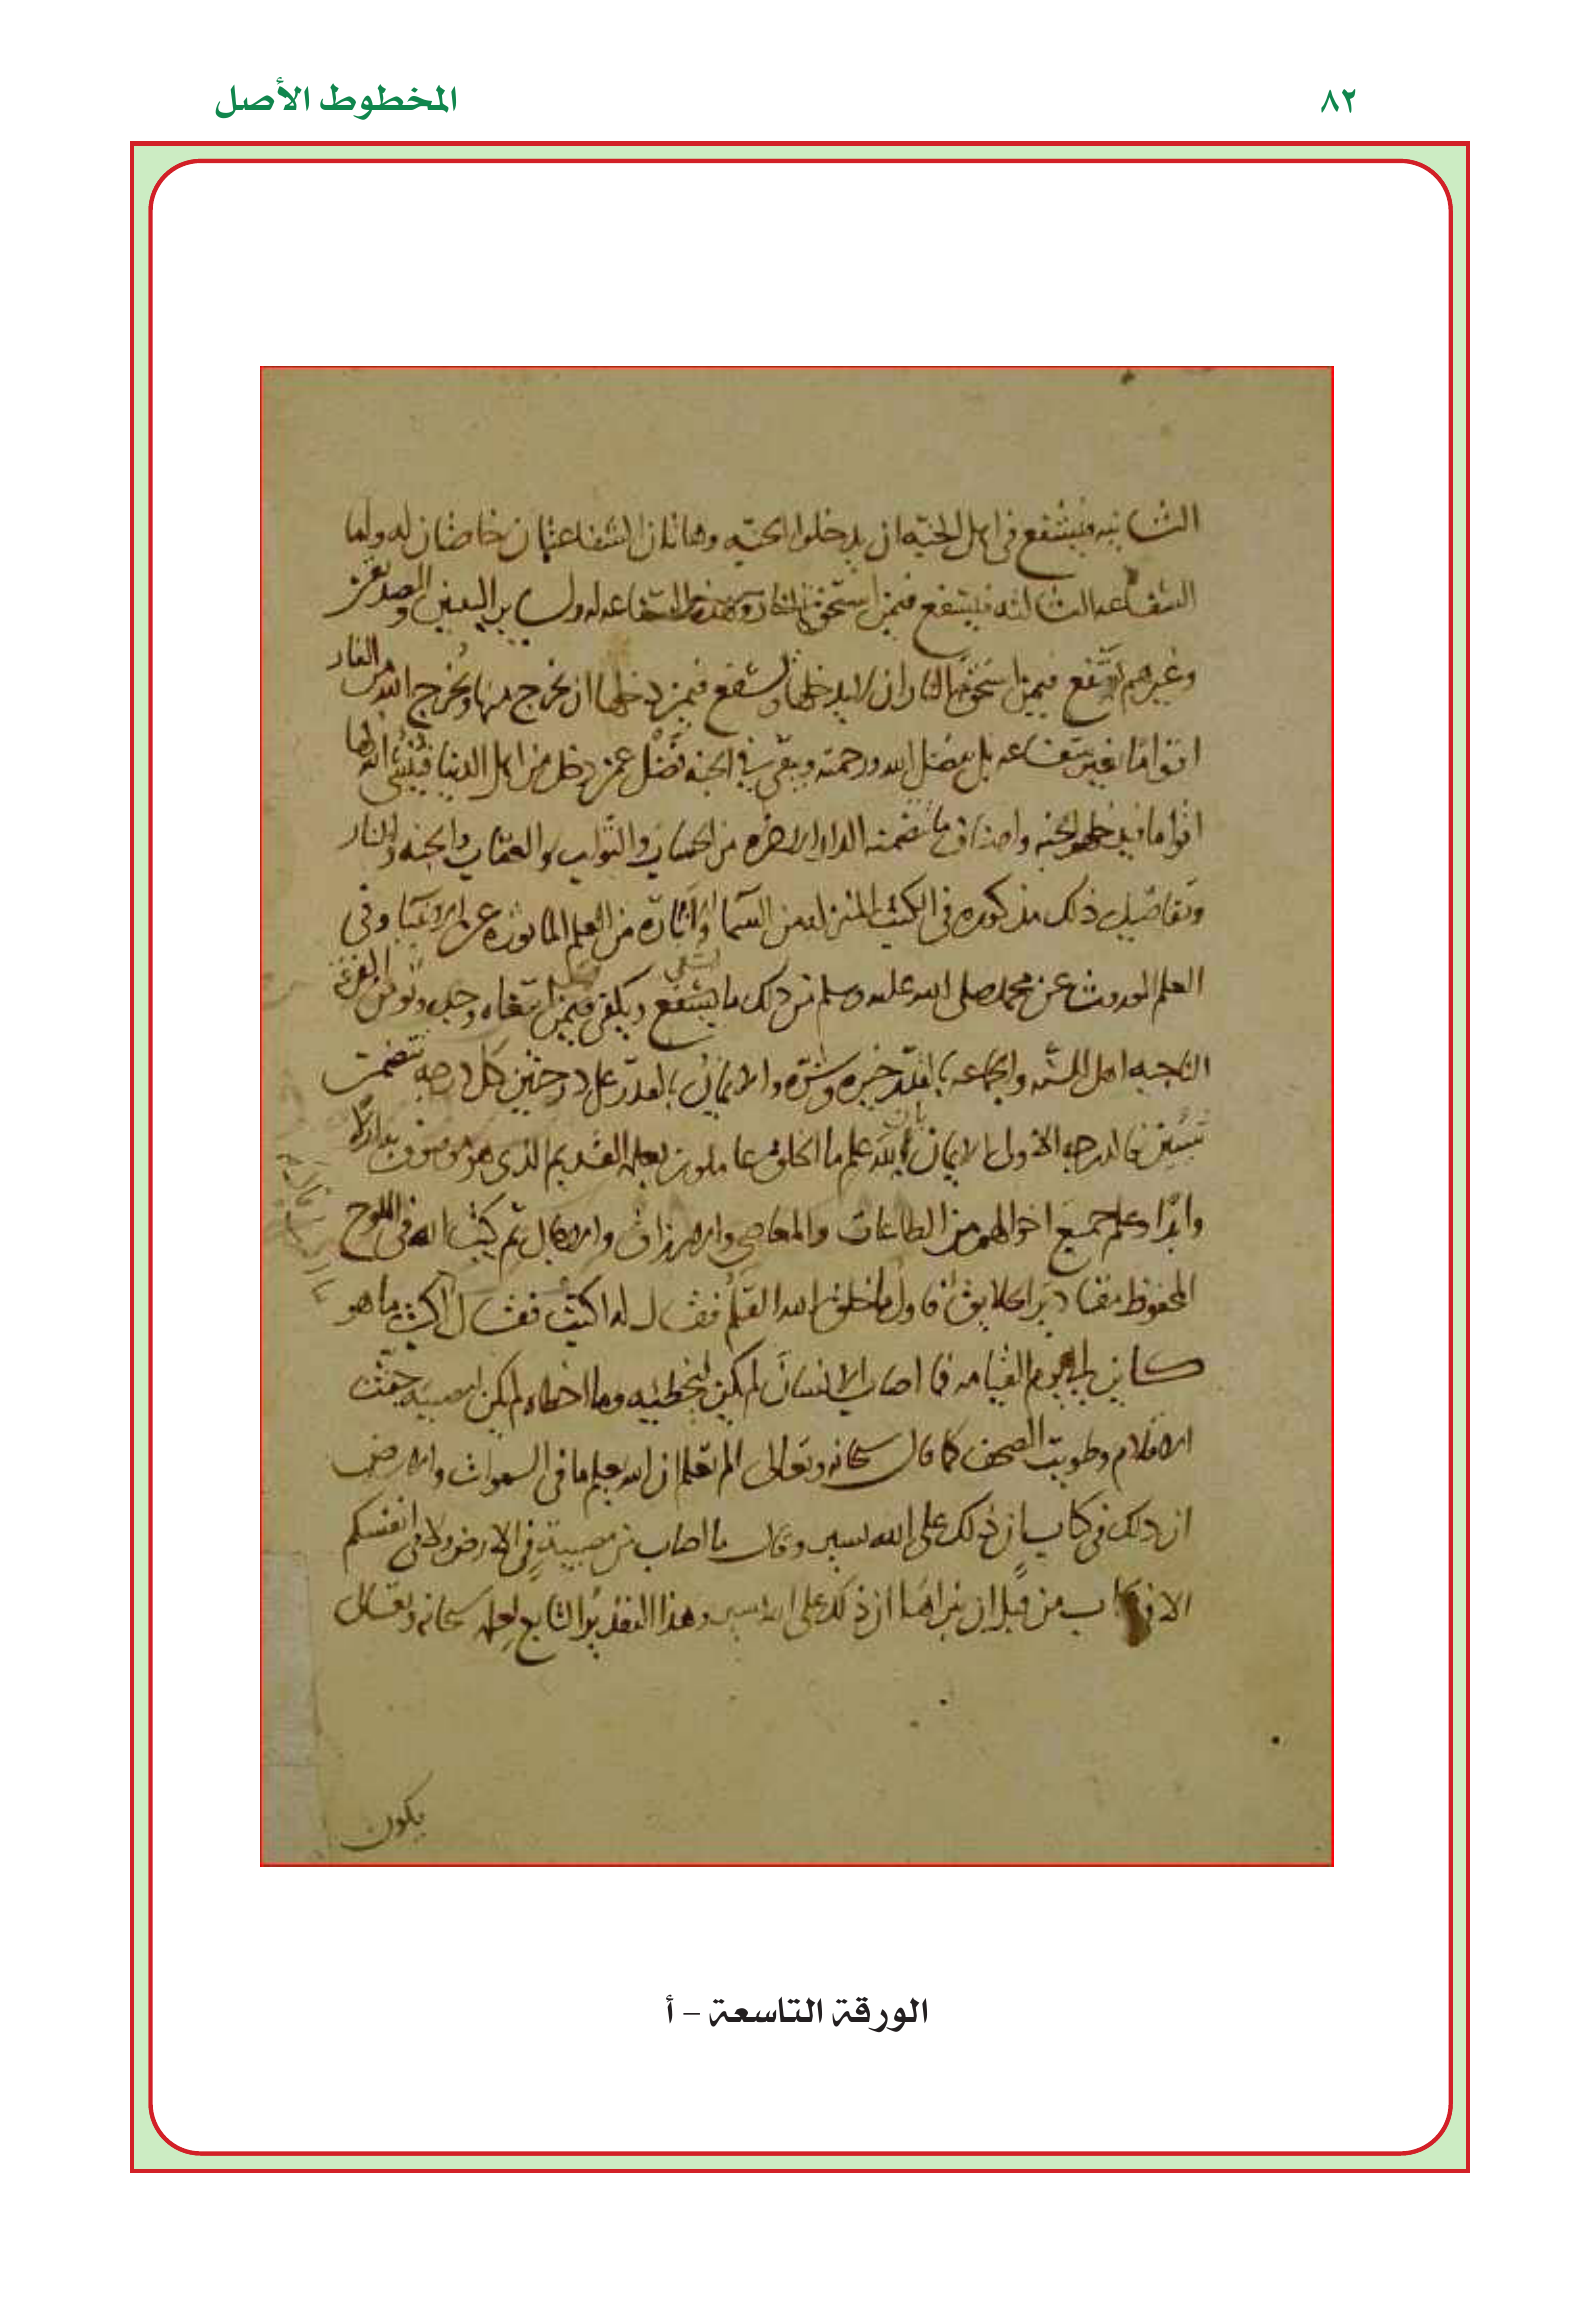 المخطوط الأصل
٨٢
الثانيه فيشفع في اهل الجنه ان يدخلوا الجنه وهاتان الشفاعتان خاصتان له واما
الشفاعه الثالثه فيشفع فيمن استحق النار وهذه الشفاعه له ولساير النبيين والصديقين
وغيرهم يشفع فيمن استحق النار ان لا يدخلها ويشفع فيمن دخلها ان يخرج منها ويخرج الله من النار
اقواما بغير شفاعه بل بفضل الله ورحمته ويبقى في الجنه فضل عمن دخل من اهل الدنيا فينشئ الله لها
اقواما فيدخلهم الجنه واصناف ما تضمنته الدار الاخره من الحساب والثواب والعقاب والجنه والنار
وتفاصيل ذلك مذكوره في الكتب المنزله من السما واثاره من العلم الماثوره عن الانبيا وفي
العلم الموروث عن محمد صلى الله عليه وسلم من ذلك ما يشفي ويكفي فمن ابتغاه وجده وتومن الفرقه
الناجيه اهل السنه والجماعه بالقدر خيره وشره والايمان بالقدر على درجتين كل درجه تتضمن
شيئين فالدرجه الاولى الايمان بان الله علم ما الخلق عاملون بعلمه القديم الذي هو موصوف به ازلا
وابدا وعلم جميع احوالهم من الطاعات والمعاصي والارزاق والاجال ثم كتب الله في اللوح
المحفوظ مقادير الخلايق فاول ما خلق الله القلم فقال له اكتب فقال ما اكتب قال اكتب ما هو
كاين الى يوم القيامه فما اصاب الانسان لم يكن ليخطيه وما اخطاه لم يكن ليصيبه جفت
الاقلام وطويت الصحف كما قال سبحانه وتعالى الم تعلم ان الله يعلم ما في السموات والارض
ان ذلك في كتاب ان ذلك على الله يسير وقال ما اصاب من مصيبة في الارض ولا في انفسكم
الا في كتاب من قبل ان نبراها ان ذلك على الله يسير وهذا التقدير التابع لعلمه سبحانه وتعالى
يكون
الورقة التاسعة – أ